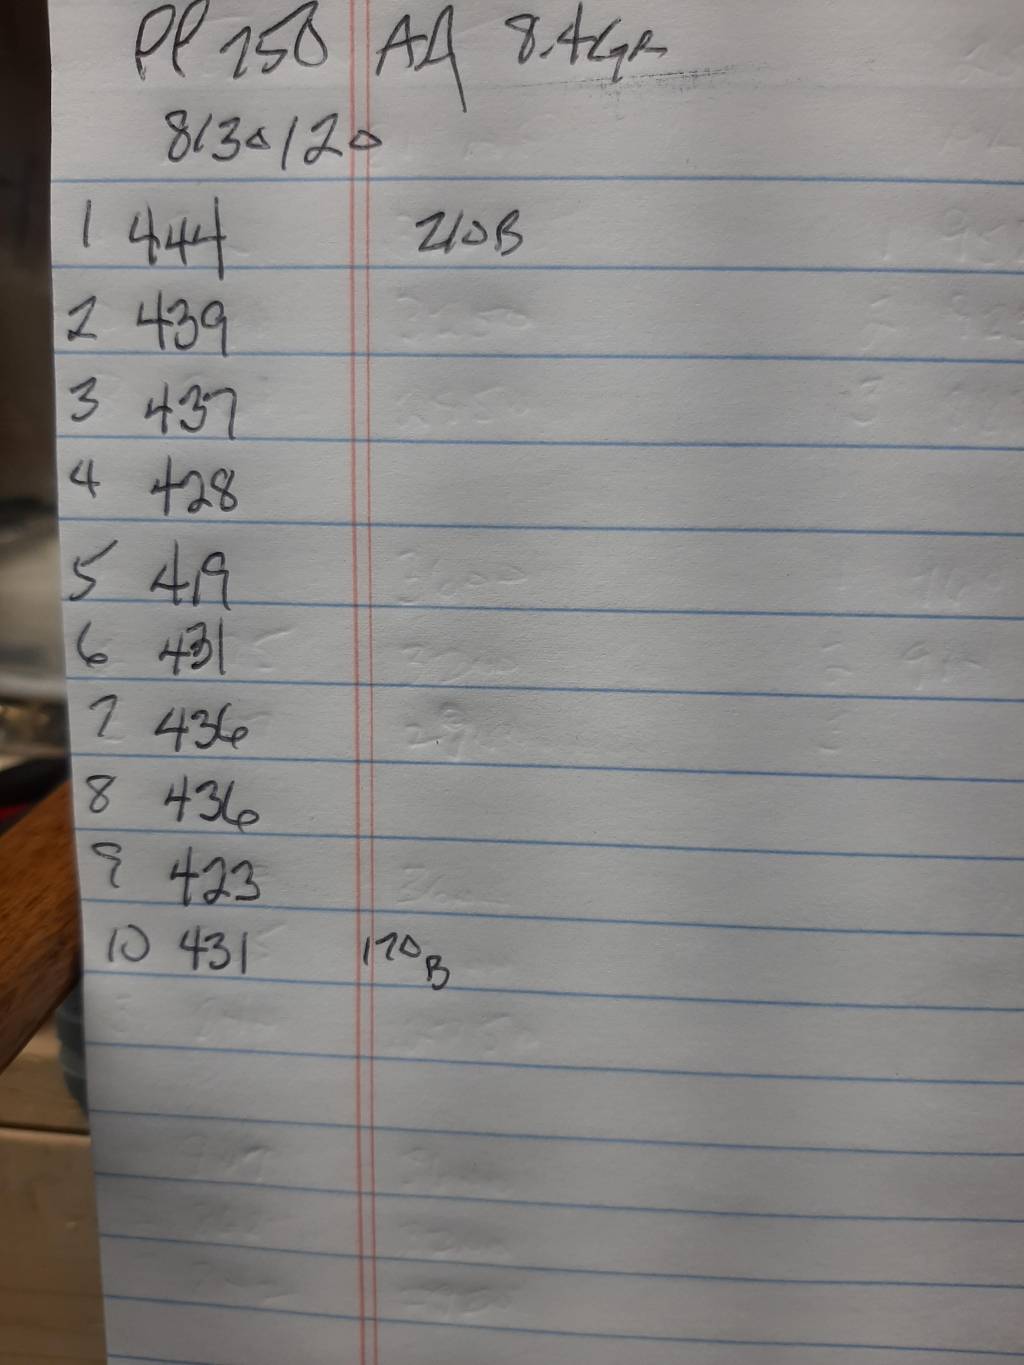 PP750 AA 8.4Gr
8130120
1 444 210B
2 439
3 437
4 428
5 419
6 431
7 436
8 436
9 423
10 431 170B